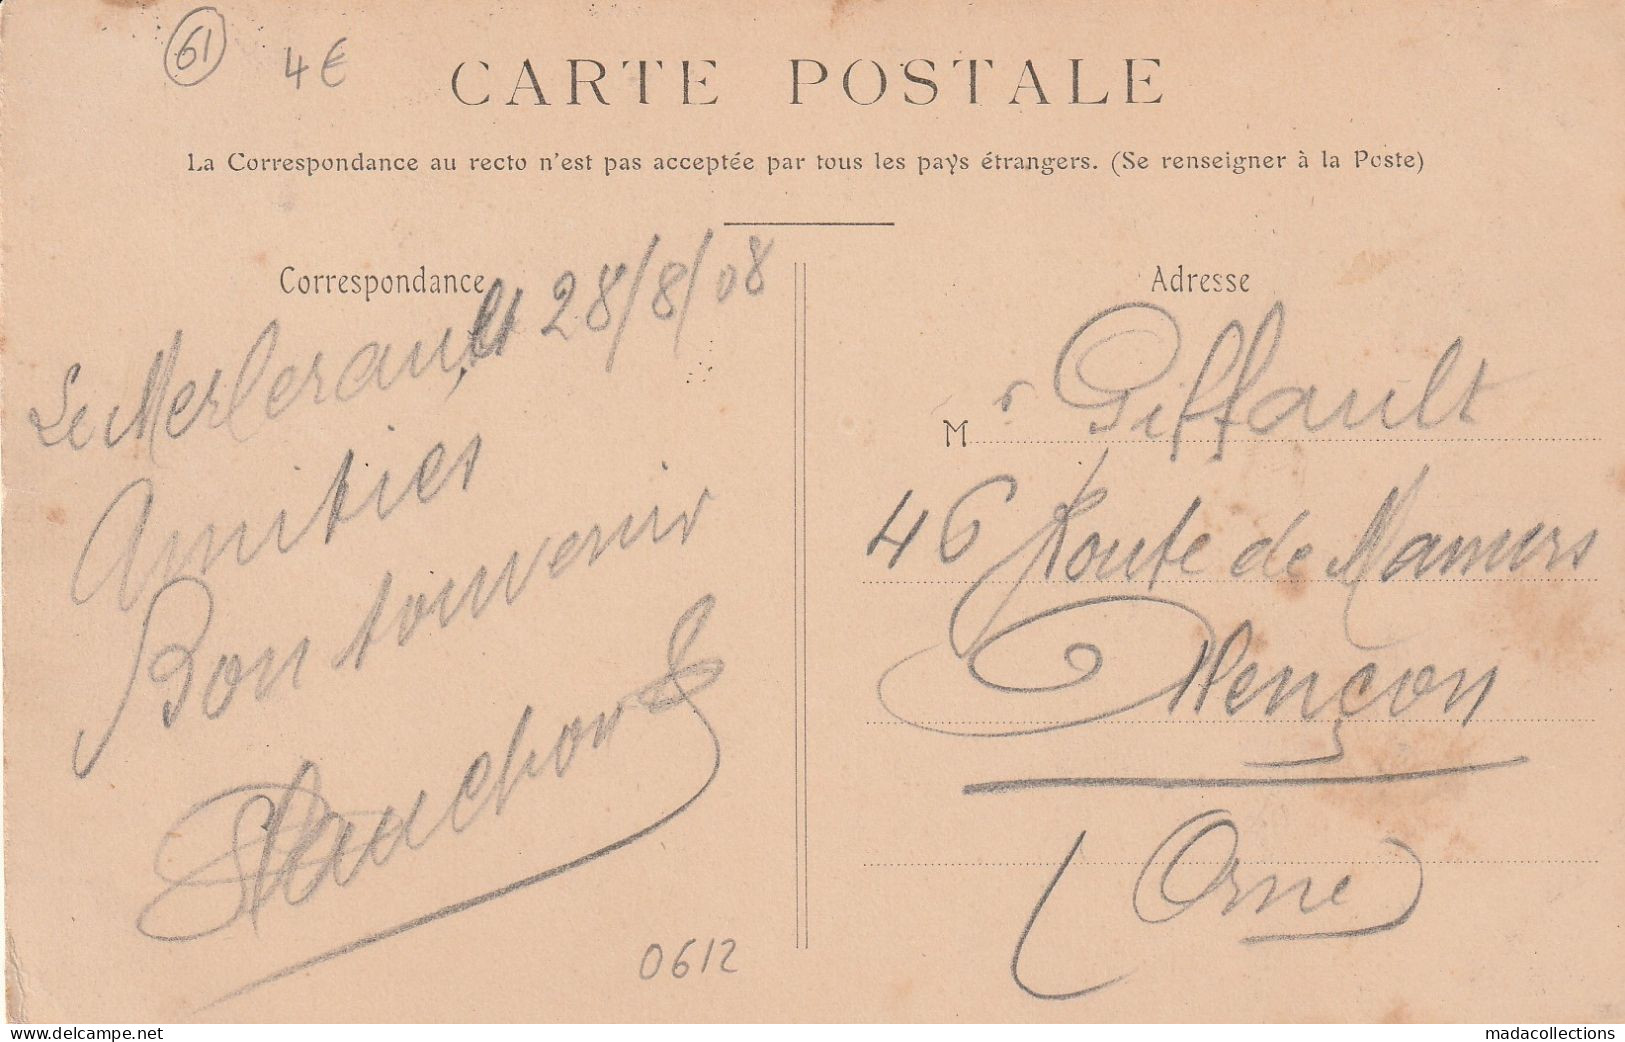 61
4€
CARTE POSTALE
La Correspondance au recto n'est pas acceptée par tous les pays étrangers. (Se renseigner à la Poste)
Correspondance
Le Merlerault 28/8/08
Amitiés
Bon souvenir
0612
Adresse
Mr Giffault
46 Route de Mamers
Alençon
(Orne)
www.delcampe.net
madacollections